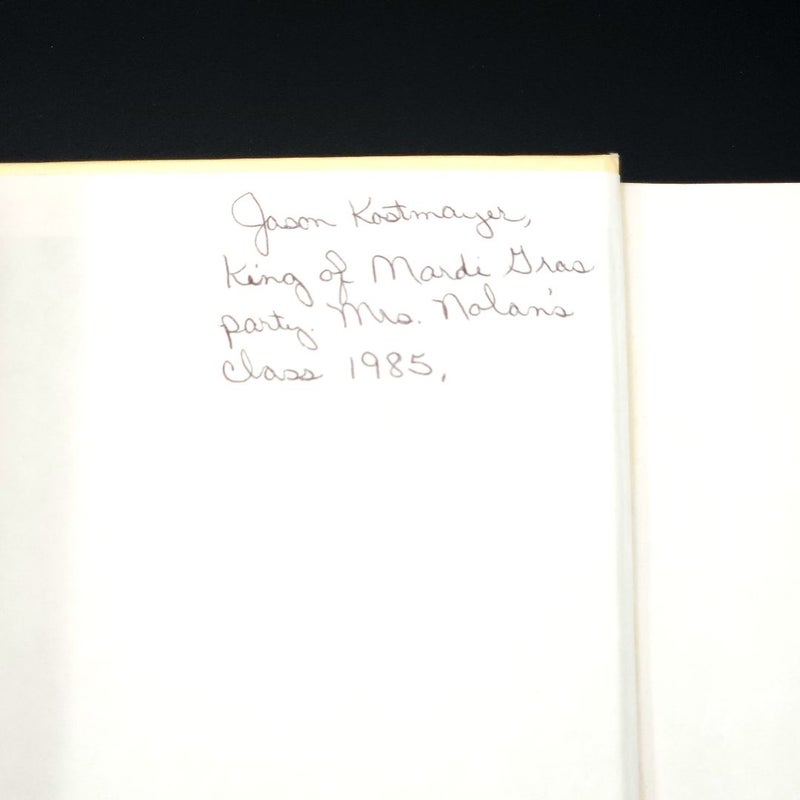 Jason Kostmayer,
King of Mardi Gras
party. Mrs. Nolan's
class 1985.